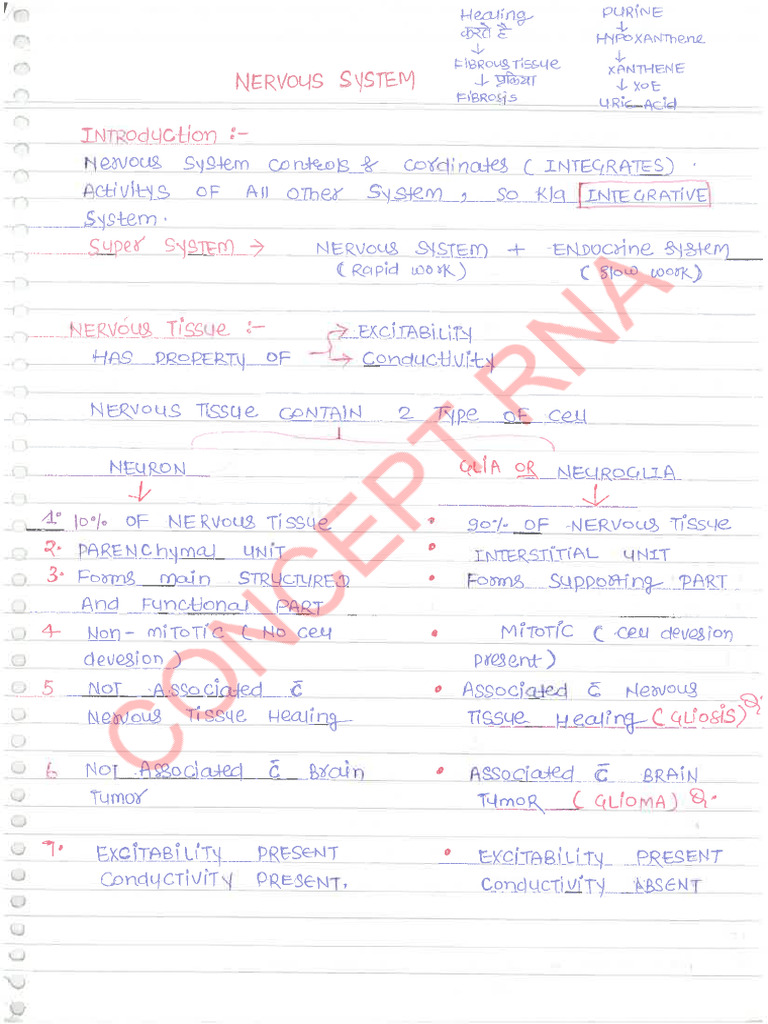 Healing
करते है
↓
FIBROUS TISSUE
↓ प्रक्रिया
FIBROSIS
PURINE
↓
HYPOXANTHENE
↓
XANTHENE
↓ XOE
URIC-ACID
NERVOUS SYSTEM
INTRODUCTION :-
NERVOUS SYSTEM CONTROLS & CORDINATES ( INTEGRATES) .
ACTIVITYS OF All OTHER SYSTEM , SO K/a INTEGRATIVE
SYSTEM.
SUPER SYSTEM → NERVOUS SYSTEM + ENDOCRINE SYSTEM
( Rapid work) ( Slow work)
NERVOUS TISSUE :-
HAS PROPERTY OF → EXCITABILITY
→ CONDUCTIVITY
NERVOUS TISSUE CONTAIN 2 TYPE OF Cell
NEURON
↓
1. 10% OF NERVOUS TISSUE
2. PARENCHYMAL UNIT
3. FORMS MAIN STRUCTURED
AND FUNCTIONAL PART
4 NON- MITOTIC ( NO Cell
devesion )
5 NOT ASSOCIATED C̄
NERVOUS TISSUE HEALING
6 NOT ASSOCIATED C̄ BRAIN
TUMOR
7. EXCITABILITY PRESENT
CONDUCTIVITY PRESENT.
GLIA OR NEUROGLIA
↓
• 90% OF NERVOUS TISSUE
• INTERSTITIAL UNIT
• FORMS SUPPORTING PART
• MITOTIC ( Cell devesion
present )
• ASSOCIATED C̄ NERVOUS
TISSUE HEALING (GLIOSIS)
• ASSOCIATED C̄ BRAIN
TUMOR ( GLIOMA)
• EXCITABILITY PRESENT
CONDUCTIVITY ABSENT
CONCEPT RNA